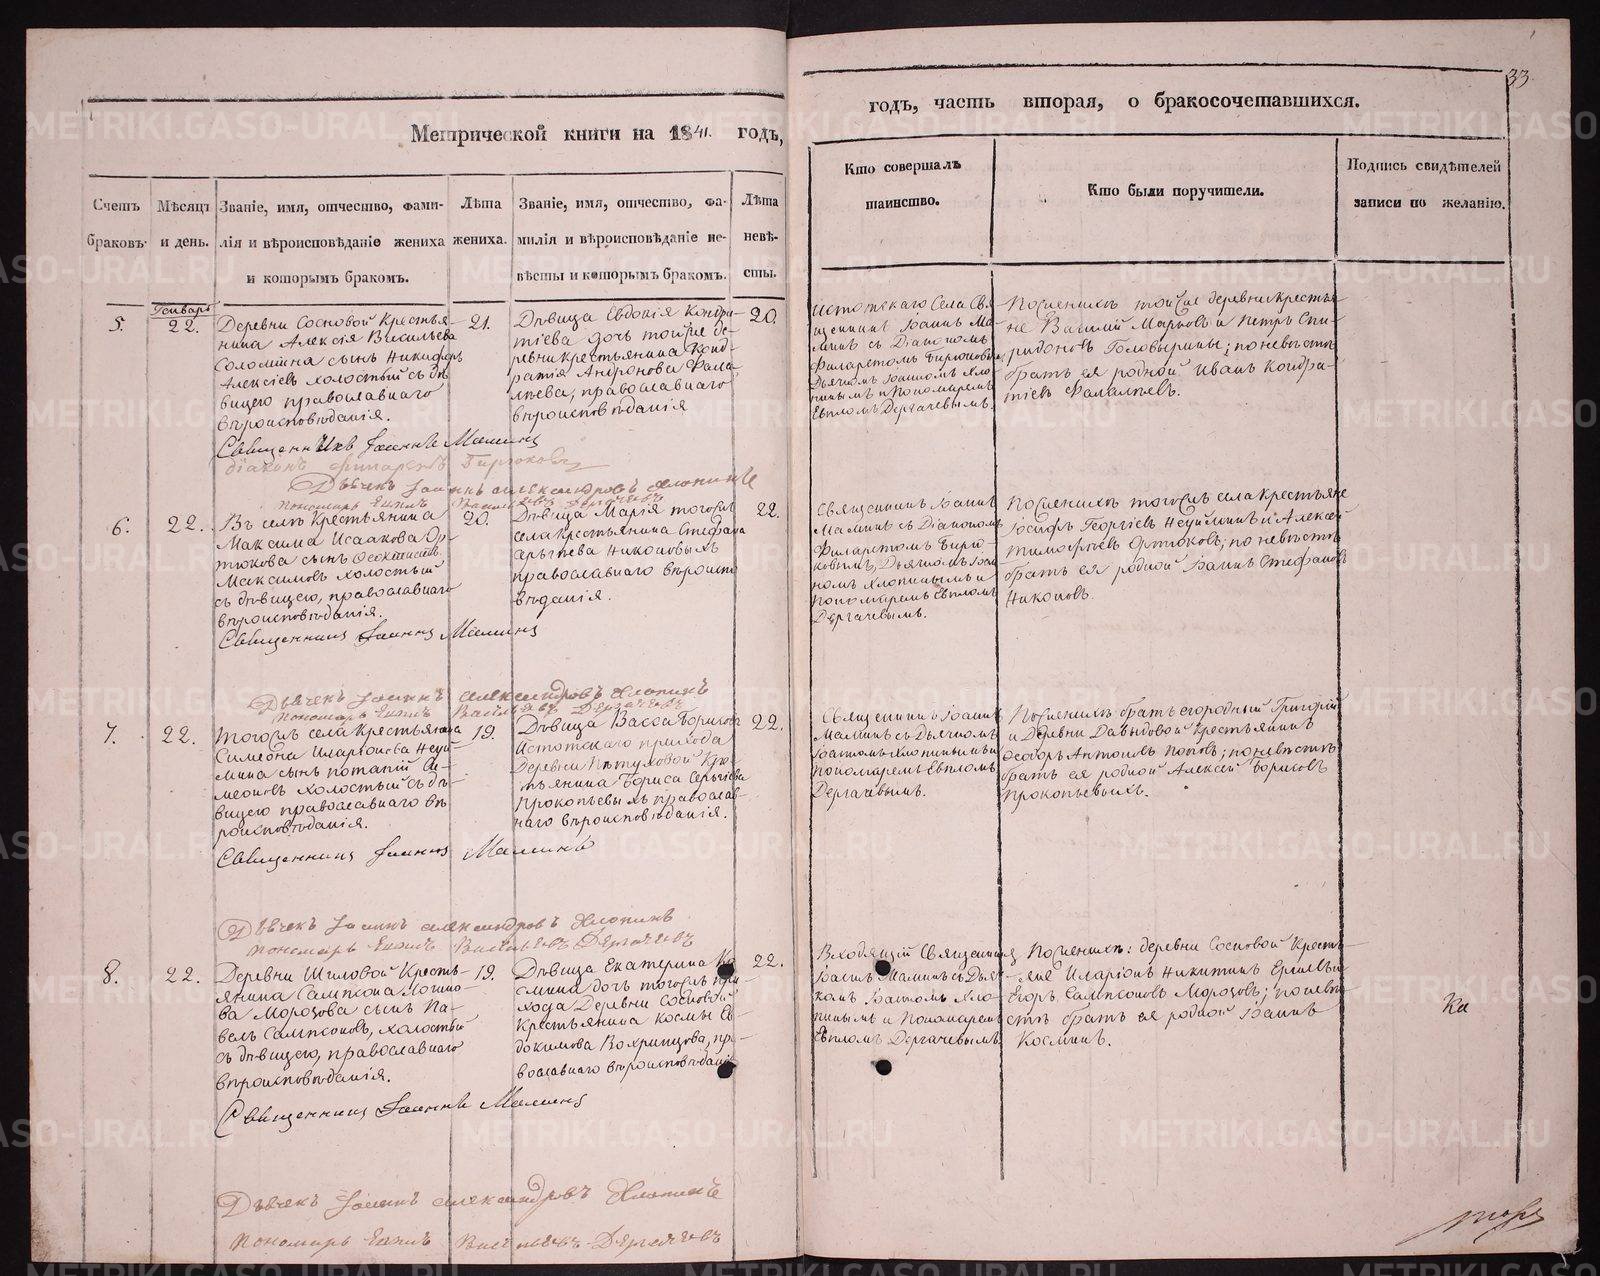 Метрической книги на 1841. годъ,
Счетъ браковъ.
Мѣсяцъ и день.
Званіе, имя, отчество, фами-
лія и вѣроисповѣданіе жениха
и которымъ бракомъ.
Лѣта
жениха.
Званіе, имя, отчество, фа-
милія и вѣроисповѣданіе не-
вѣсты и которымъ бракомъ.
Лѣта
невѣ-
сты.
Генварь
5.
22.
Деревни Сосновой Крестья-
нина Алексія Васильева
Соломина сынъ Никифоръ
Алексіевъ холостый съ дѣ
вицею православнаго
вѣроисповѣданія.
21.
Дѣвица Евдокія Кондра-
тіева дочь тойже де-
ревни крестьянина Конд-
ратія Андронова
православнаго
вѣроисповѣданія
20.
Священникъ Іоаннъ Маминъ
Діаконъ Филаретъ Бирюковъ
Дьячекъ Іоаннъ Александровъ Хлопинъ
Пономарь Евплъ Васильевъ Дергачевъ
6.
22.
Въ селѣ Крестьянина
Максима Исаакова Ор-
тюкова сынъ
Максимовъ холостый
съ дѣвицею, православнаго
вѣроисповѣданія.
20.
Дѣвица Марія тогожъ
села крестьянина Стефана
Сергѣева Никоновыхъ
православнаго вѣроиспо
вѣданія.
22.
Священникъ Іоаннъ Маминъ
Дьячекъ Іоаннъ Александровъ Хлопинъ
Пономарь Евплъ Васильевъ Дергачевъ
7.
22.
Тогожъ села крестьянина
Симеона Иларіонова Неуй-
мина сынъ Потапій Си-
меоновъ холостый съ дѣ-
вицею православнаго вѣ
роисповѣданія.
19.
Дѣвица Васса Борисова
Истотскаго прихода
Деревни Пѣтуховой Кре-
стьянина Бориса Сергѣева
Прокопьевыхъ православ-
наго вѣроисповѣданія.
22.
Священникъ Іоаннъ Маминъ
Дьячекъ Іоаннъ Александровъ Хлопинъ
Пономарь Евплъ Васильевъ Дергачевъ
8.
22.
Деревни Шиловой Кресть-
янина Сампсона Логино-
ва Морозова сынъ Па-
велъ Сампсоновъ, холостый
съ дѣвицею, православнаго
вѣроисповѣданія.
19.
Дѣвица Екатерина Ко
смина дочь тогожъ при
хода Деревни Сосновой
Крестьянина Космы Ев-
докимова Вохринцова, пра-
вославнаго вѣроисповѣданія
22.
Священникъ Іоаннъ Маминъ
Дьячекъ Іоаннъ Александровъ Хлопинъ
Пономарь Евплъ Васильевъ Дергачевъ
33.
годъ, часть вторая, о бракосочетавшихся.
Кто совершалъ
таинство.
Кто были поручители.
Подпись свидѣтелей
записи по желанію.
Истотскаго Села Свя
щенникъ Іоаннъ Ма-
минъ съ Діакономъ
Филаретомъ Бирюковымъ
Дьячкомъ Іоанномъ Хло-
пинымъ и Пономаремъ
Евпломъ Дергачевымъ.
По женихѣ тойже деревни крестья-
не Василій Марковъ и Петръ Спи-
ридоновъ Головырины; по невѣстѣ
братъ ея родной Иванъ Кондра-
тіевъ
Священникъ Іоаннъ
Маминъ съ Діакономъ
Филаретомъ Бирю-
ковымъ, Дьячкомъ Іоан
номъ Хлопинымъ и
Пономаремъ Евпломъ
Дергачевымъ.
По женихѣ тогожъ села Крестьяне
Іосифъ Георгіевъ Неуйминъ и Алексей
Тимофѣевъ Ортюковъ; по невѣстѣ
братъ ея родной Іоаннъ Стефановъ
Никоновъ.
Священникъ Іоаннъ
Маминъ съ Дьячкомъ
Іоанномъ Хлопинымъ и
Пономаремъ Евпломъ
Дергачевымъ.
По женихѣ братъ егородный Григорій
и Деревни Давыдовой Крестьянинъ
Ѳеодоръ Антоновъ Поповъ; по невѣстѣ
братъ ея родной Алексей Борисовъ
Прокопьевыхъ.
Входящій Священникъ
Іоаннъ Маминъ съ Дьяч-
комъ Іоанномъ Хло-
пинымъ и Пономаремъ
Евпломъ Дергачевымъ.
По женихѣ: деревни Сосновой Кресть-
яне Иларіонъ Никитинъ
Егоръ Сампсоновъ Морозовъ; по невѣ
стѣ братъ ея родной Іоаннъ
Косминъ.
Ка
METRIKI.GASO-URAL.RU